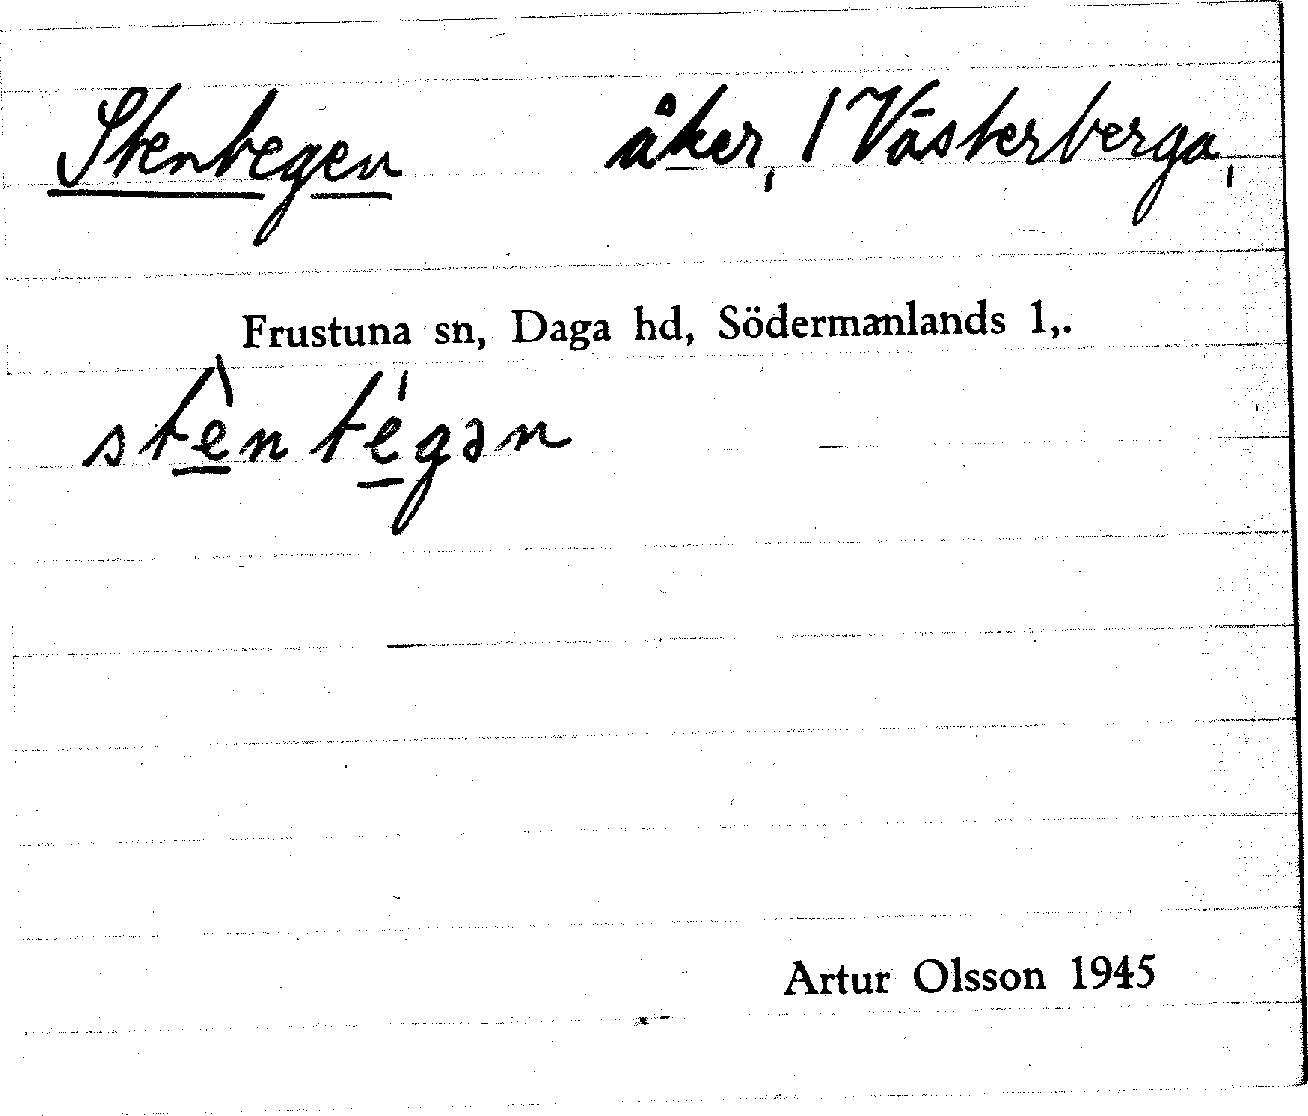 Stentegen åker, 1 Västerberga,
Frustuna sn, Daga hd, Södermanlands l,.
stèntégən
Artur Olsson 1945